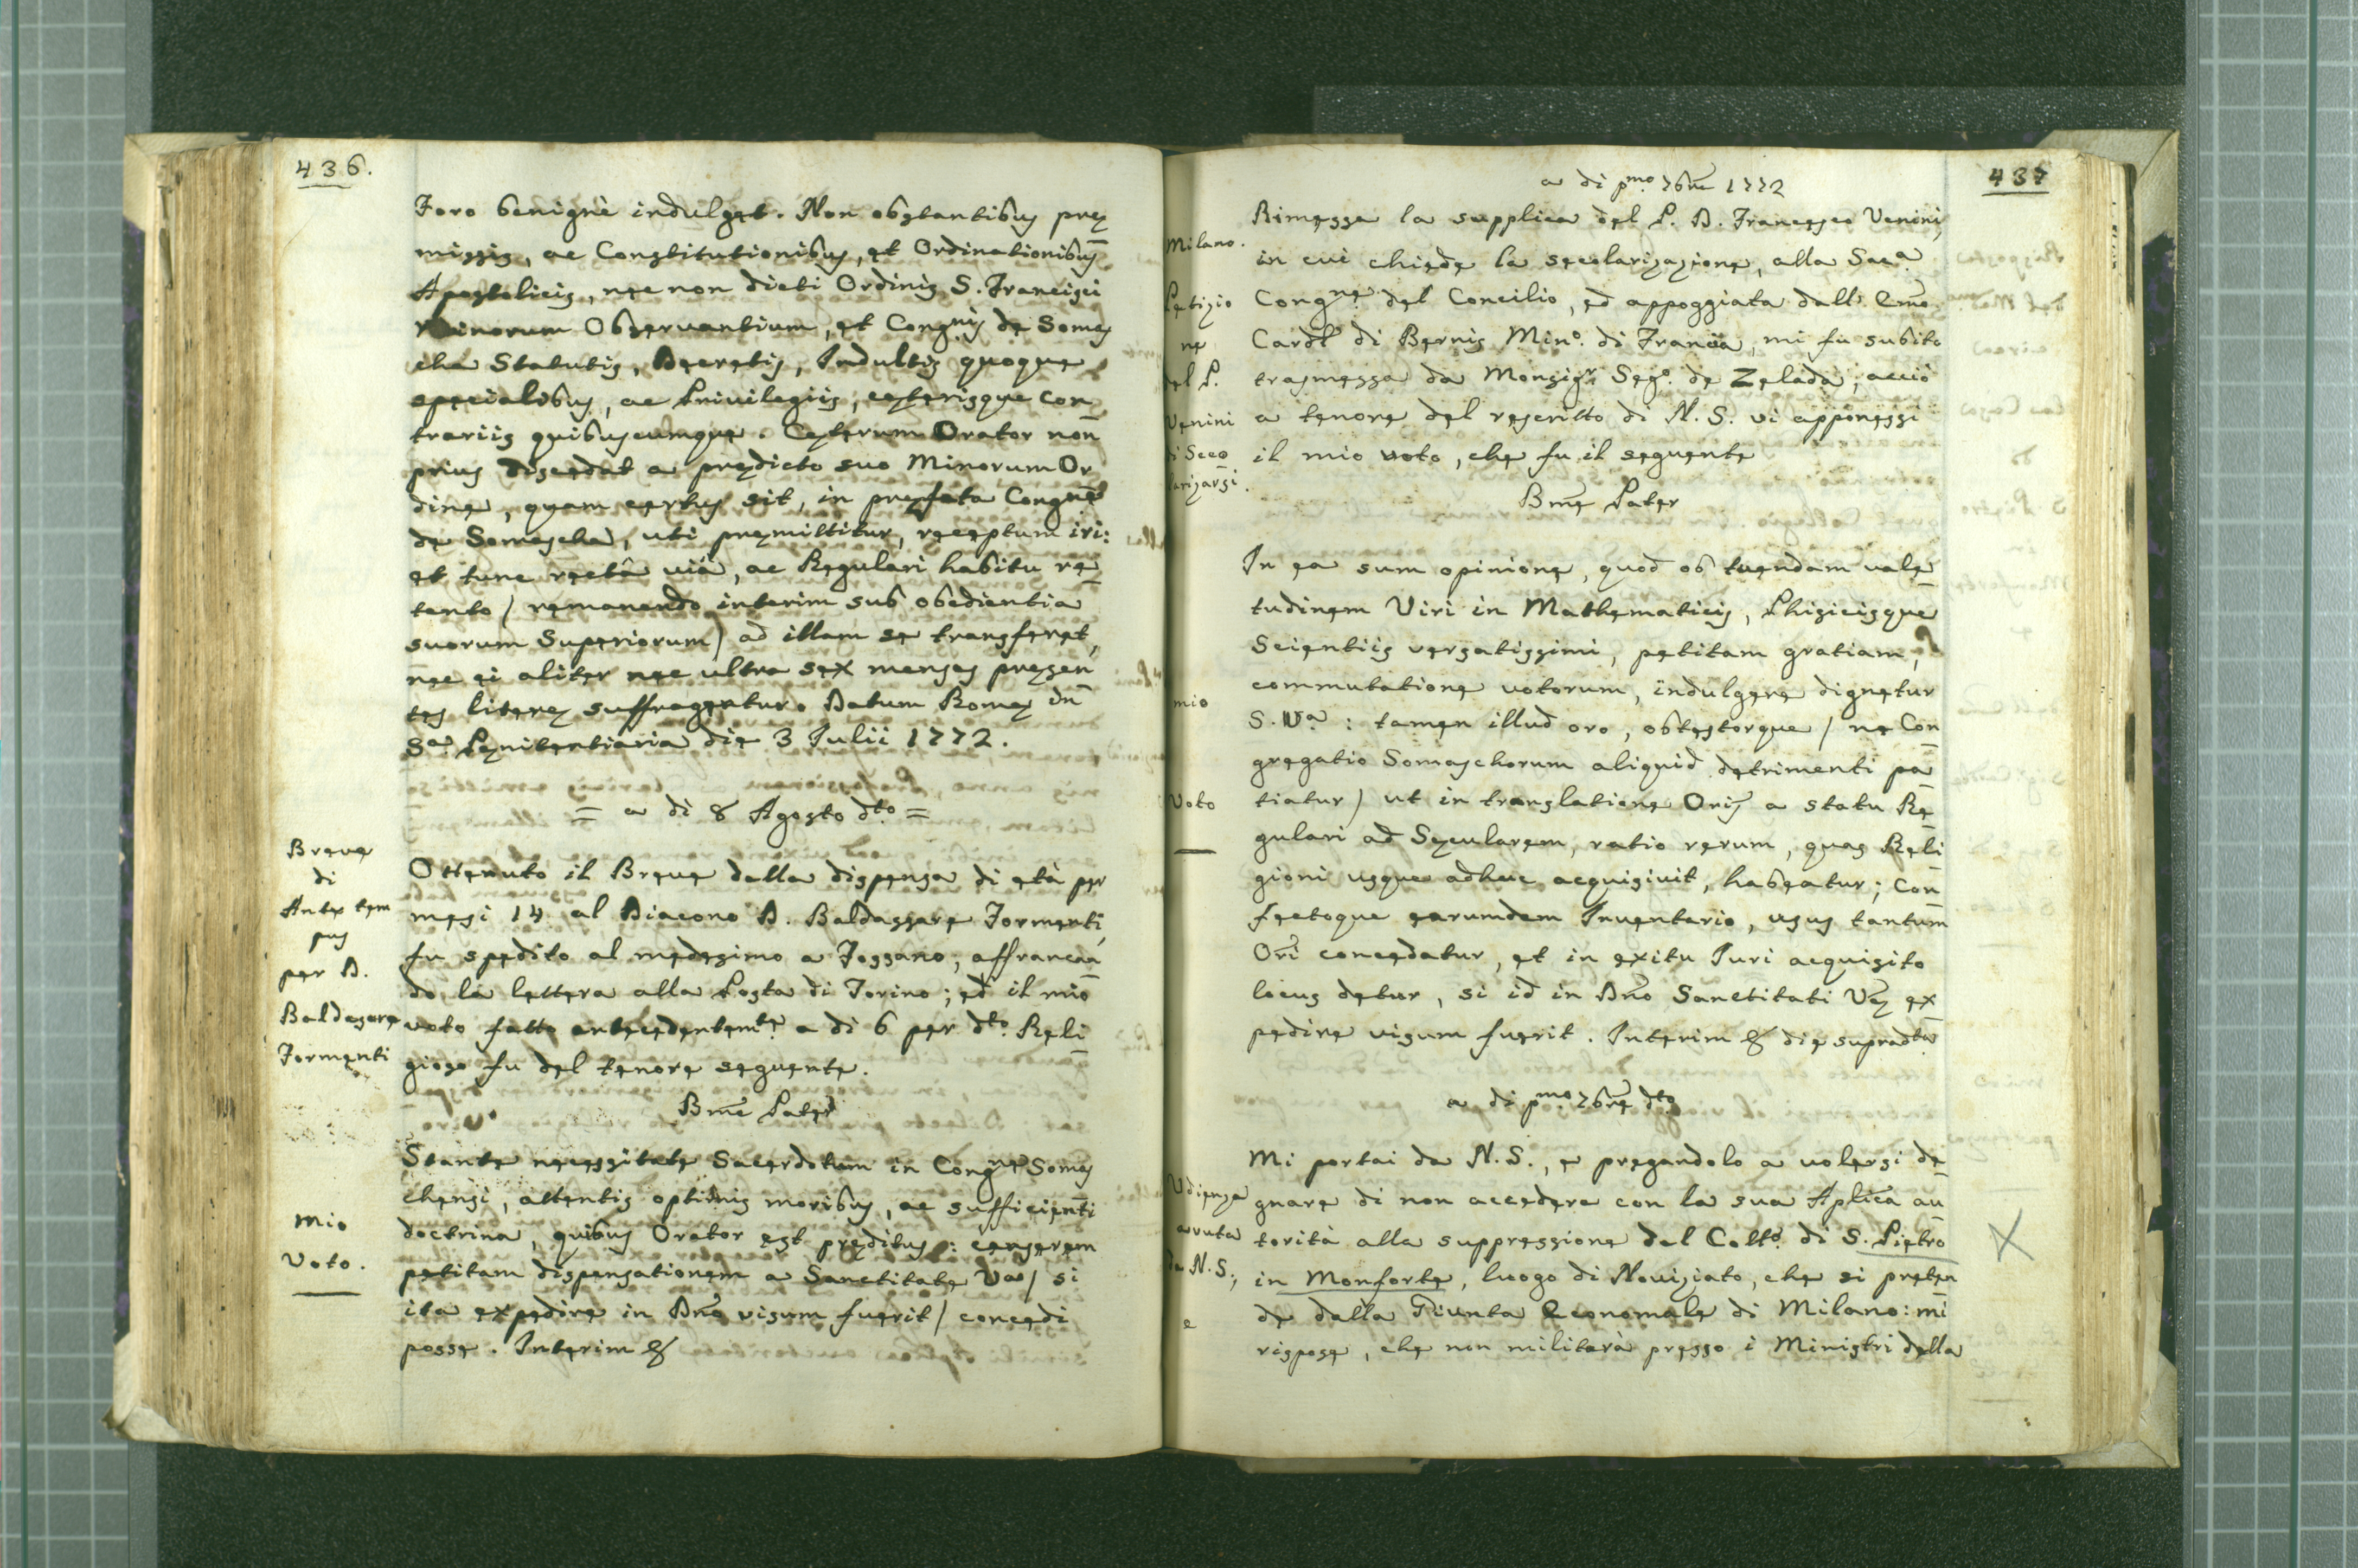 436.
Foro benignè indulget. Non obstantibus præ
missis, ac Constitutionibus, et Ordinationibus
Apostolicis, nec non dicti Ordinis S. Francisci
Minorum Observantium, et Congnis de Somas
cha Statutis, Decretis, Indultis quoque
specialibus, ac Privilegiis, ceterisque con
trariis quibuscumque. Ceterum Orator non
prius discedat a prædicto suo Minorum Or
dine, quam certus sit, in præfata Congne
de Somascha, uti præmittitur, receptum iri:
et tunc rectâ viâ, ac Regulari habitu re
tento / remanendo interim sub obedientia
suorum Superiorum / ad illam se transferet,
nec ei aliter nec ultra sex menses præsen
tes literæ suffragentur. Datum Romæ in
Sa Pænitentiaria die 3 Julii 1772.
= a di 8 Agosto dto =
Breve
di
Ante tem
pus
per D.
Baldasare
Formenti
Ottenuto il Breve della dispensa di età per
mesi 14 al Diacono D. Baldassare Formenti,
fu spedito al medesimo a Fossano, affrancan
do la lettera alla Posta di Torino; ed il mio
voto fatto antecedentemte a di 6 per dto Reli
gioso fu del tenore seguente.
Bme Pater
mio
Voto.
Stante necessitate Sacerdotum in Congne Somas
chensi, attentis optimis moribus, ac sufficienti
doctrina, quibus Orator est præditus: censerem
petitam dispensationem a Sanctitate Va / si
ita expedire in Dno visum fuerit / concedi
posse. Interim &
437
a di pmo 7bre 1772
Milano.
Petizio
ne
del P.
Venini
di Seco
larizarsi.
Rimessa la supplica del P. D. Francesco Venini,
in cui chiede la secolarizazione, alla Saca
Congne del Concilio, ed appoggiata dall' Emo
Cardl di Bernis Mino. di Francia, mi fu subito
trasmessa da Monsigr Sego. de Zelada, acciò
a tenore del rescritto di N. S. vi apponessi
il mio voto, che fu il seguente
Bme Pater
mio
Voto
In ea sum opinione, quod ob tuendam vale
tudinem Viri in Mathematicis, Phisicisque
Scientiis versatissimi, petitam gratiam,
commutatione votorum, indulgere dignetur
S. Va: tamen illud oro, obtestorque / ne Con
gregatio Somaschorum aliquid detrimenti pa
tiatur / ut in translatione Oris a statu Re
gulari ad Secularem, ratio rerum, quas Reli
gioni usque adhuc acquisivit, habeatur; Con
fectoque earumdem Inventario, usus tantum
Ori concedatur, et in exitu Juri acquisito
locus detur, si id in Dno Sanctitati Væ ex
pedire visum fuerit. Interim & die supradta
a di pmo 7bre dto
Udienza
avuta
da N. S.;
e
Mi portai da N. S., e pregandolo a volersi de
gnare di non accedere con la sua Aplica au
torità alla suppressione del Collo di S. Pietro
in Monforte, luogo di Noviziato, che si preten
de dalla Giunta Economale di Milano: mi
rispose, che non militarà presso i Ministri della